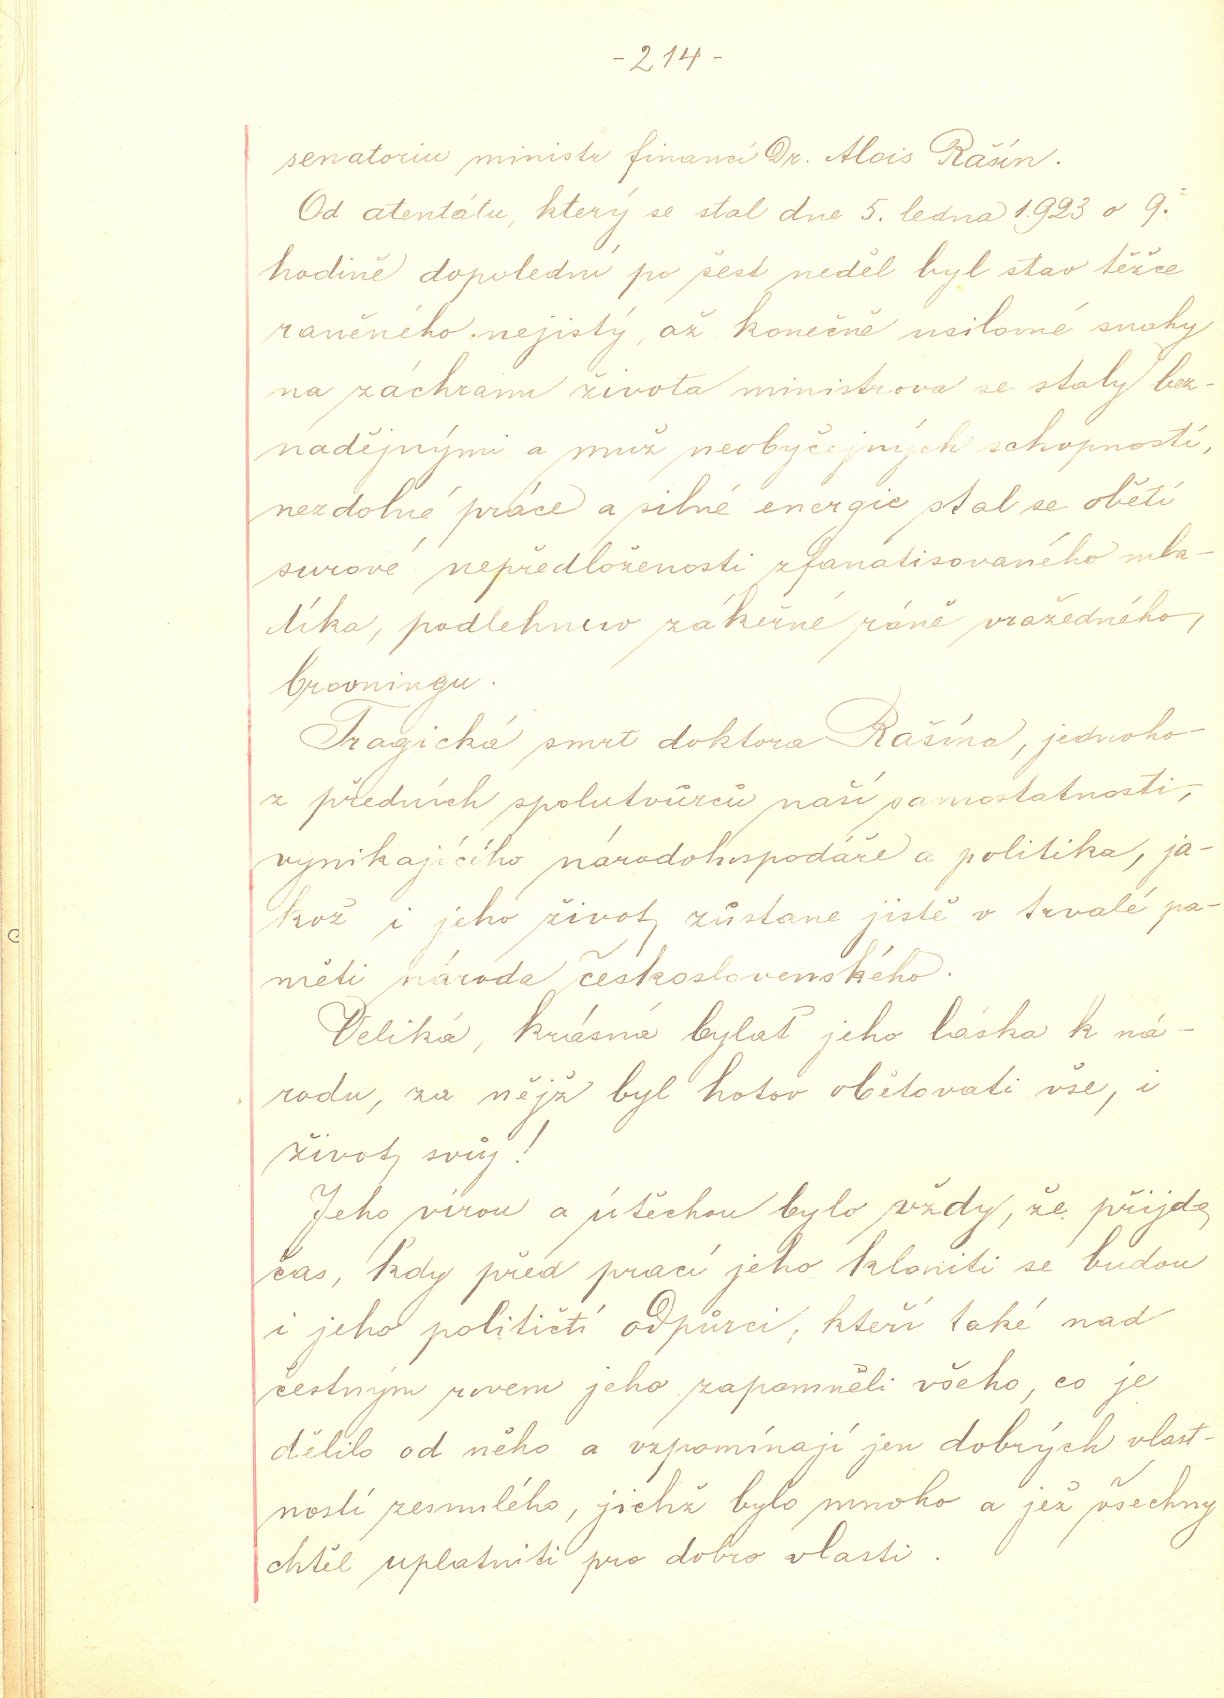 - 214 -
senatoriu ministr financí Dr. Alois Rašín.
Od atentátu, který se stal dne 5. ledna 1923 o 9.
hodině dopolední po šest neděl byl stav těžce
raněného nejistý, až konečně usilovné snahy
na záchranu života ministrova se staly bez-
nadějnými a muž neobyčejných schopností,
nezdolné práce a silné energie stal se obětí
surové nepředloženosti zfanatisovaného mla-
díka, podlehnuv zákeřné ráně vražedného,
brovningu.
Tragická smrt doktora Rašína, jednoho
z předních spolutvůrců naší samostatnosti,
vynikajícího národohospodáře a politika, ja-
kož i jeho život, zůstane jistě v trvalé pa-
měti národa československého.
Veliká, krásná bylať jeho láska k ná-
rodu, za nějž byl hotov obětovati vše, i
život svůj!
Jeho vírou a útěchou bylo vždy, že přijde
čas, kdy před prací jeho kloniti se budou
i jeho političtí odpůrci, kteří také nad
čestným rovem jeho zapomněli všeho, co je
dělilo od něho a vzpomínají jen dobrých vlast-
ností zesnulého, jichž bylo mnoho a jež všechny
chtěl uplatniti pro dobro vlasti.